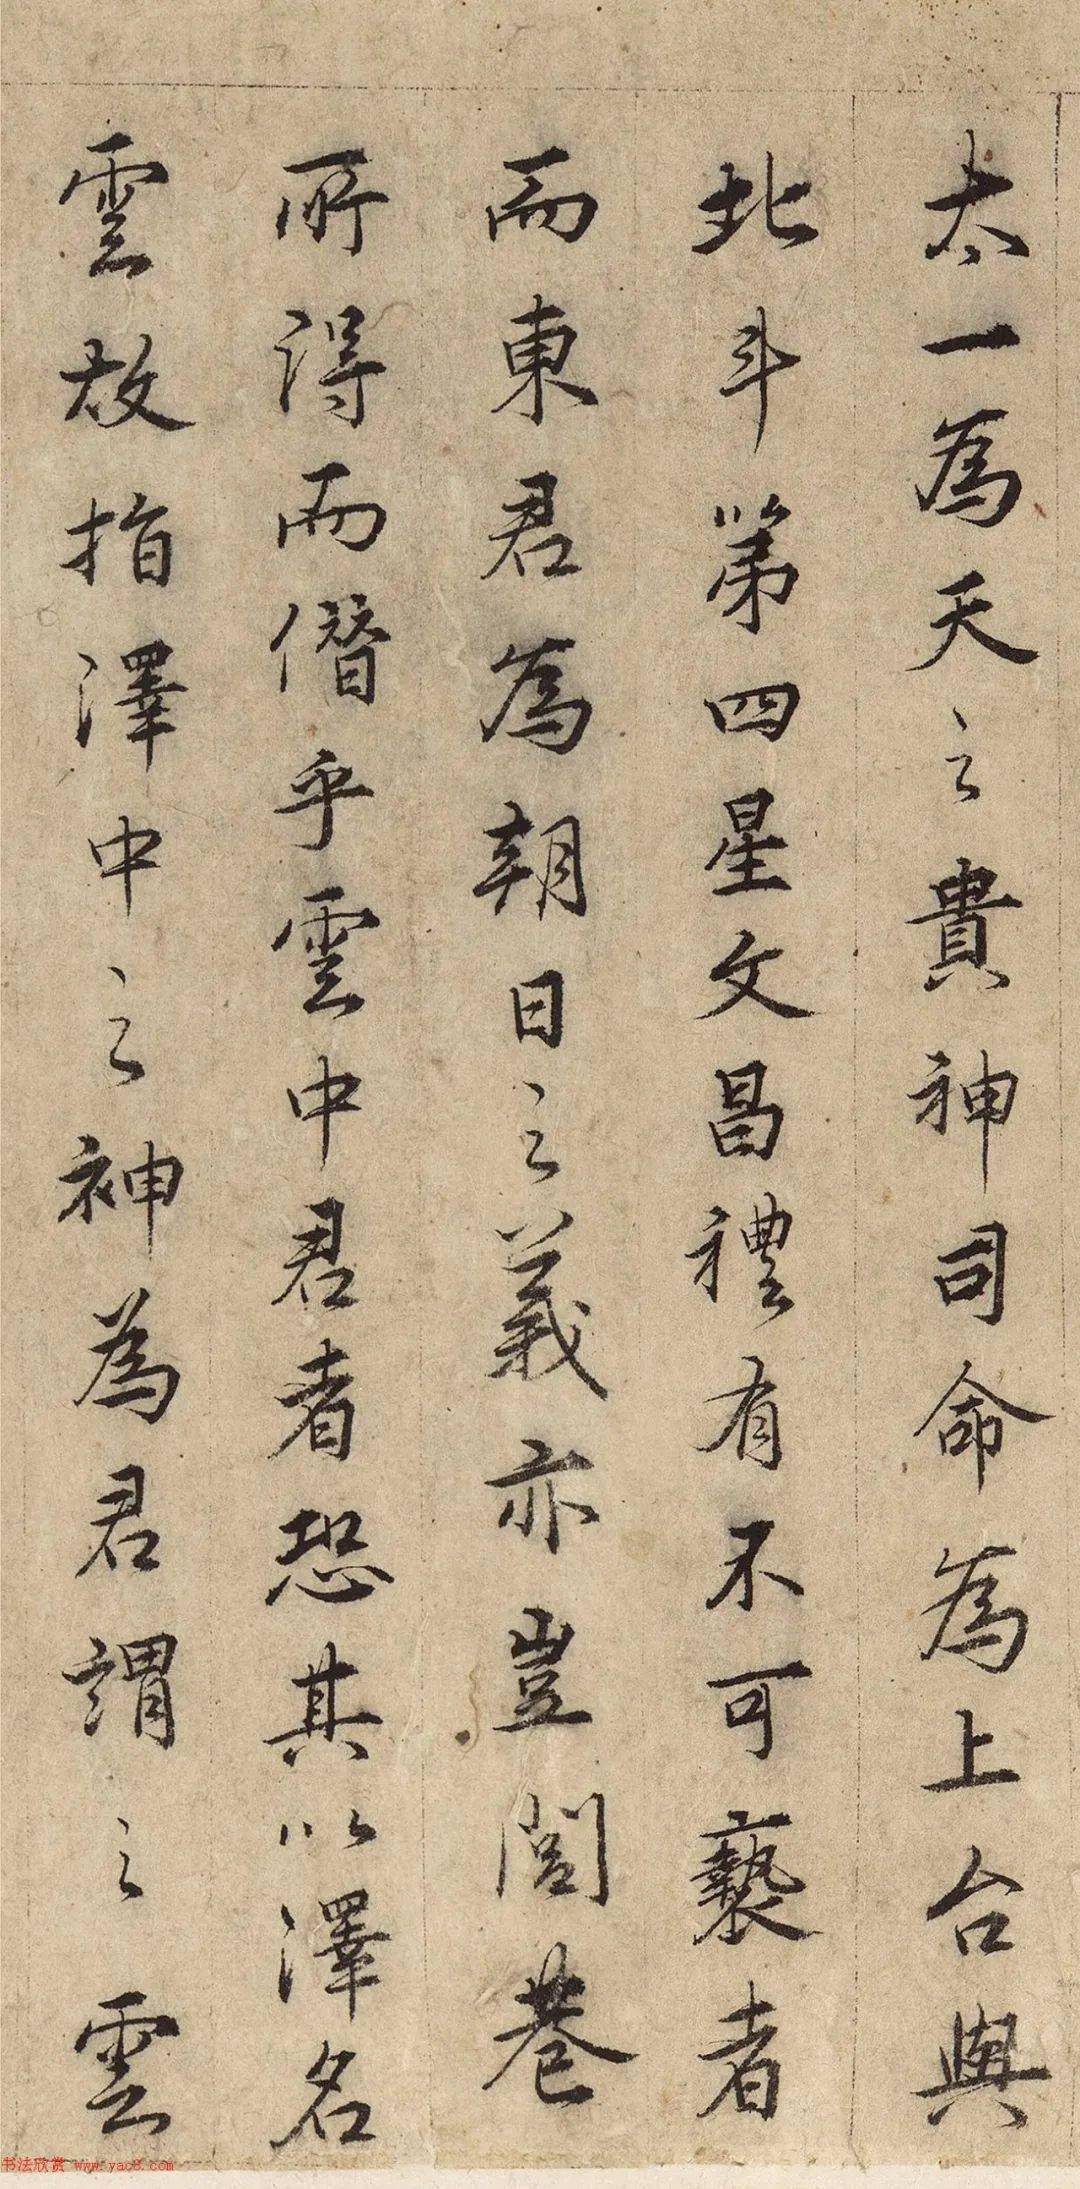 太一為天之貴神司命為上台與
北斗第四星文昌禮有不可褻者
而東君為朝日之義亦豈閭巷
所得而僭乎雲中君者恐其以澤名
雲故指澤中之神為君謂之雲
书法欣赏 www.yac8.com